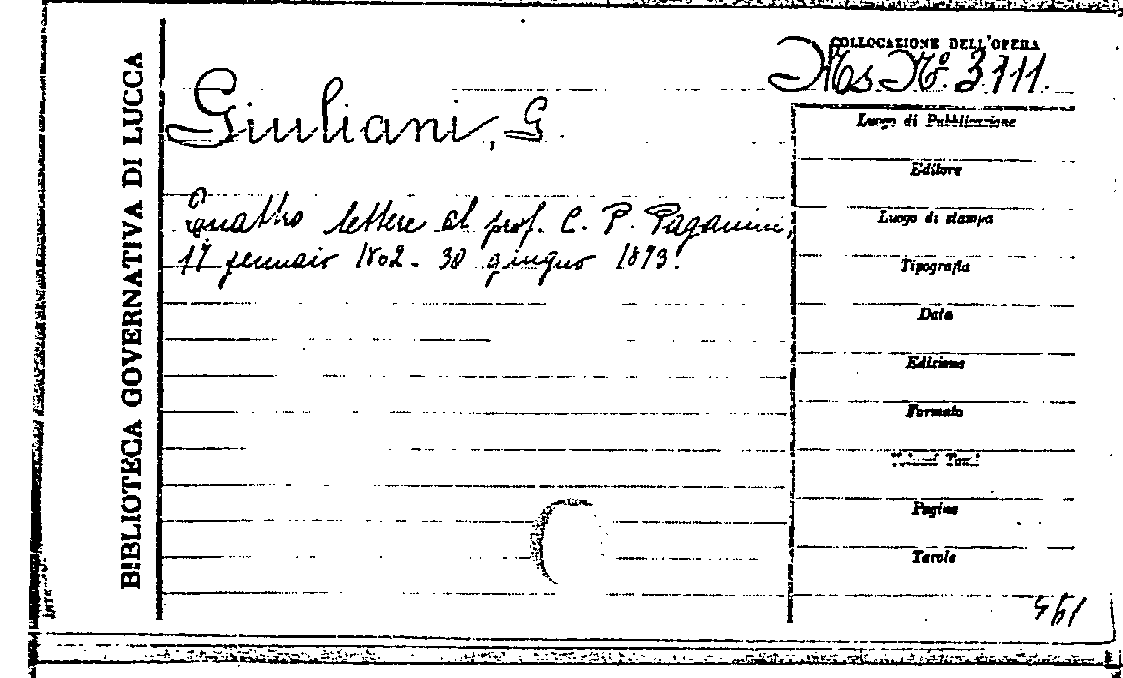 BIBLIOTECA GOVERNATIVA DI LUCCA
COLLOCAZIONE DELL'OPERA
Ms. N.º 3111.
Giuliani, G.
Quattro lettere al prof. C. P. Paganini,
17 gennaio 1862 - 30 giugno 1873.
Luogo di Pubblicazione
Editore
Luogo di stampa
Tipografia
Data
Edizione
Formato
Pagine
Tavole